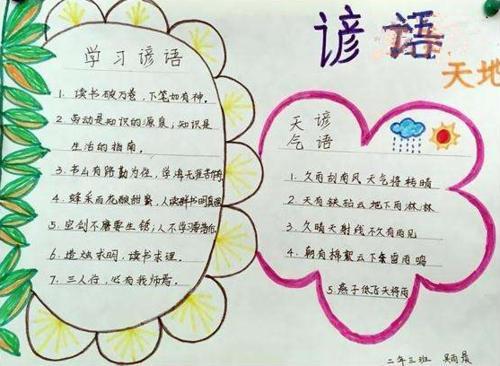 谚语
天地
学习谚语
1. 读书破万卷，下笔如有神。
2. 劳动是知识的源泉；知识是
生活的指南。
3. 书山有路勤为径，学海无涯苦作舟
4. 蜂采百花酿甜蜜，人读群书明真理
5. 宝剑不磨要生锈，人不学
6. 造烛求明，读书求理。
7. 三人行，必有我师焉。
天气
谚语
1. 久雨刮南风 天气将转晴
2. 天有铁砧云 地下雨淋淋
3. 久晴天射线 不久有雨见
4. 朝有棉絮云 下午雷雨鸣
5. 燕子低飞天将雨
二年三班